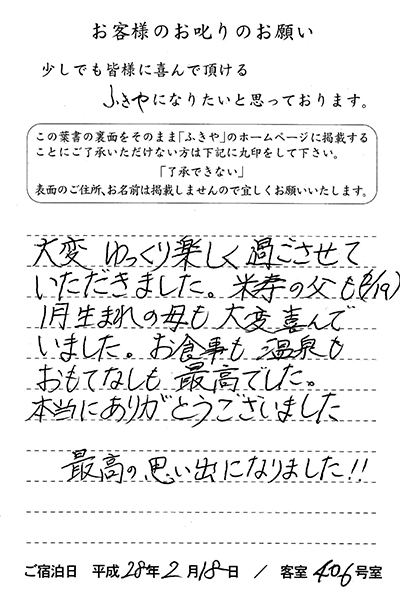 お客様のお叱りのお願い
少しでも皆様に喜んで頂ける
ふきやになりたいと思っております。
この葉書の裏面をそのまま「ふきや」のホームページに掲載する
ことにご了承いただけない方は下記に丸印をして下さい。
「了承できない」
表面のご住所、お名前は掲載しませんので宜しくお願いいたします。
大変 ゆっくり楽しく過ごさせて
いただきました。米寿の父も(2/19)
1月生まれの母も大変喜んで
いました。お食事も温泉も
おもてなしも最高でした。
本当にありがとうございました
最高の思い出になりました!!
ご宿泊日 平成28年2月18日 / 客室406号室